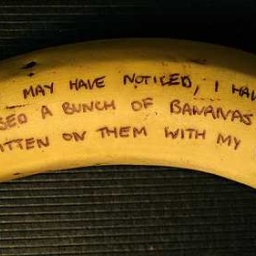 MAY HAVE NOTICED, I HAV
BED A BUNCH OF BANANAS
ITTEN ON THEM WITH MY